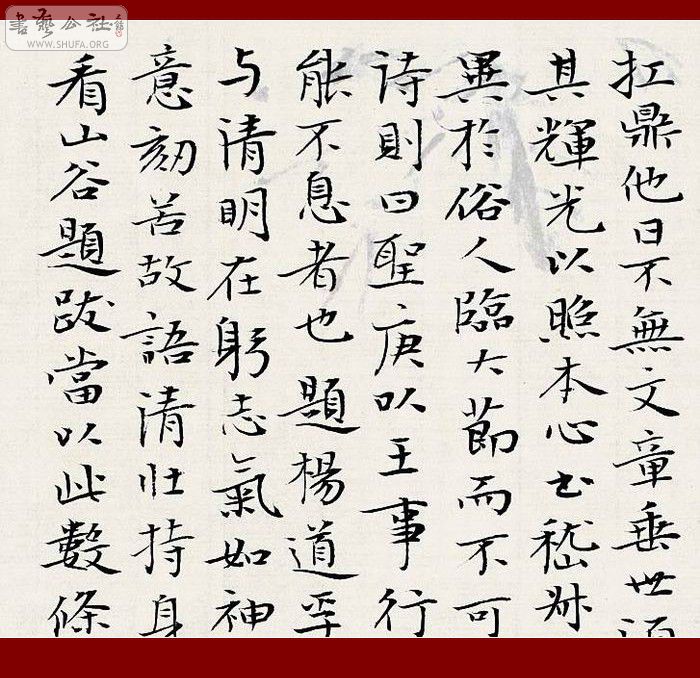 書藝公社
WWW.SHUFA.ORG
扛鼎他日不無文章垂世
其輝光以照本心書嵇叔
異於俗人臨大節而不可
诗則曰聖庚以王事行
能不息者也題楊道孚
与清明在躬志氣如神
意刻苦故語清壮持身
看山谷題跋當以此數條